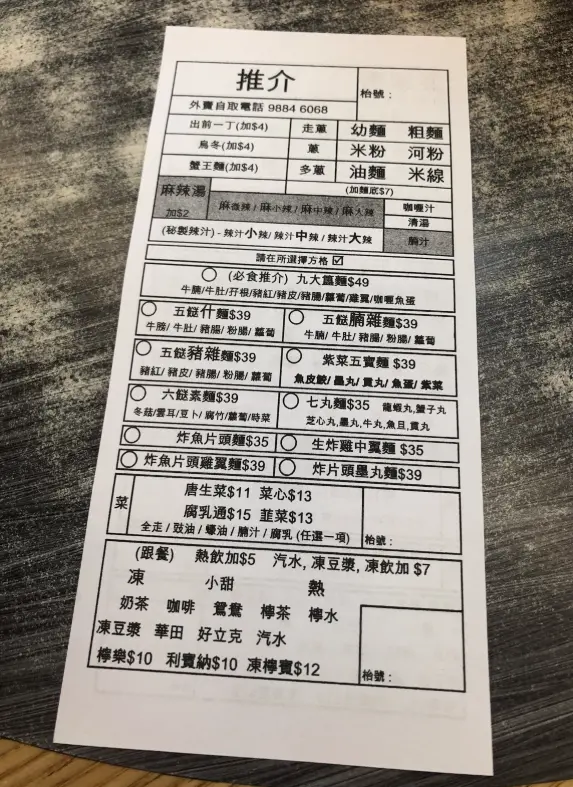 推介
枱號：
外賣自取電話 9884 6068
出前一丁(加$4) 走蔥 幼麵 粗麵
烏冬(加$4) 蔥 米粉 河粉
蟹王麵(加$4) 多蔥 油麵 米線
(加麵底$7)
麻辣湯 麻微辣/麻小辣/麻中辣/麻大辣 咖喱汁
加$2 清湯
(秘製辣汁) - 辣汁小辣/辣汁中辣/辣汁大辣 腩汁
請在所選擇方格☑
(必食推介) 九大簋麵$49
牛腩/牛肚/孖根/豬紅/豬皮/豬腸/蘿蔔/雞翼/咖喱魚蛋
五餸什麵$39 五餸腩雜麵$39
牛腩/牛肚/豬腸/粉腸/蘿蔔 牛腩/牛肚/豬腸/粉腸/蘿蔔
五餸豬雜麵$39 紫菜五寶麵 $39
豬紅/豬皮/豬腸/粉腸/蘿蔔 魚皮餃/墨丸/貢丸/魚蛋/紫菜
六餸素麵$39 七丸麵$35 龍蝦丸,蟹子丸
冬菇/雲耳/豆卜/腐竹/蘿蔔/時菜 芝心丸,墨丸,牛丸,魚旦,貢丸
炸魚片頭麵$35 生炸雞中翼麵 $35
炸魚片頭雞翼麵$39 炸片頭墨丸麵$39
菜 唐生菜$11 菜心$13
腐乳通$15 韮菜$13
全走/豉油/蠔油/腩汁/腐乳 (任選一項) 枱號：
(跟餐) 熱飲加$5 汽水, 凍豆漿, 凍飲加 $7
凍 小甜 熱
奶茶 咖啡 鴛鴦 檸茶 檸水
凍豆漿 華田 好立克 汽水
檸樂$10 利賓納$10 凍檸賓$12
枱號：